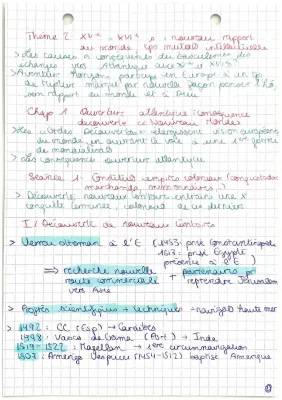 Thème 2 XVe - XVIe s : nouveau rapport
au monde, tps mutat° intellectuelle
> Les causes & conséquences du basculement des
échanges vers Atlantique aux XVe et XVIe s
> Avènement partout en Europe à un tps
de rupture marqué par nouvelle façon penser l'H,
son rapport au monde et à Dieu
Chap 1 Ouverture atlantique : conséquence
découverte "Nouveau Monde"
> Les Découvertes élargissent vision européens
du monde en ouvrant la voie à une 1ère forme
de mondialisat°
> Les conséquences ouverture atlantique
Séance 1. Constitut° empires coloniaux (conquistador,
marchands, missionnaires..)
> Découverte nouveaux entraîne une
conquête
I / Découverte de nouveaux
> Verrou ottoman à l'E (1453 : prise Constantinople
1517 : prise Égypte
présence à l'E)
=> recherche nouvelle
route commerciale
vers Asie
+ partenaires pr
reprendre Jérusalem
> Progrès scientifiques + techniques → haute mer
> 1492 : CC (Esp) → Caraïbes
1498 : Vasco de Gama (Port) → Inde
1519-1522 : Magellan → 1ère circumnavigation
1507 : Amerigo Vespucci (1454-1512) baptise Amérique
①